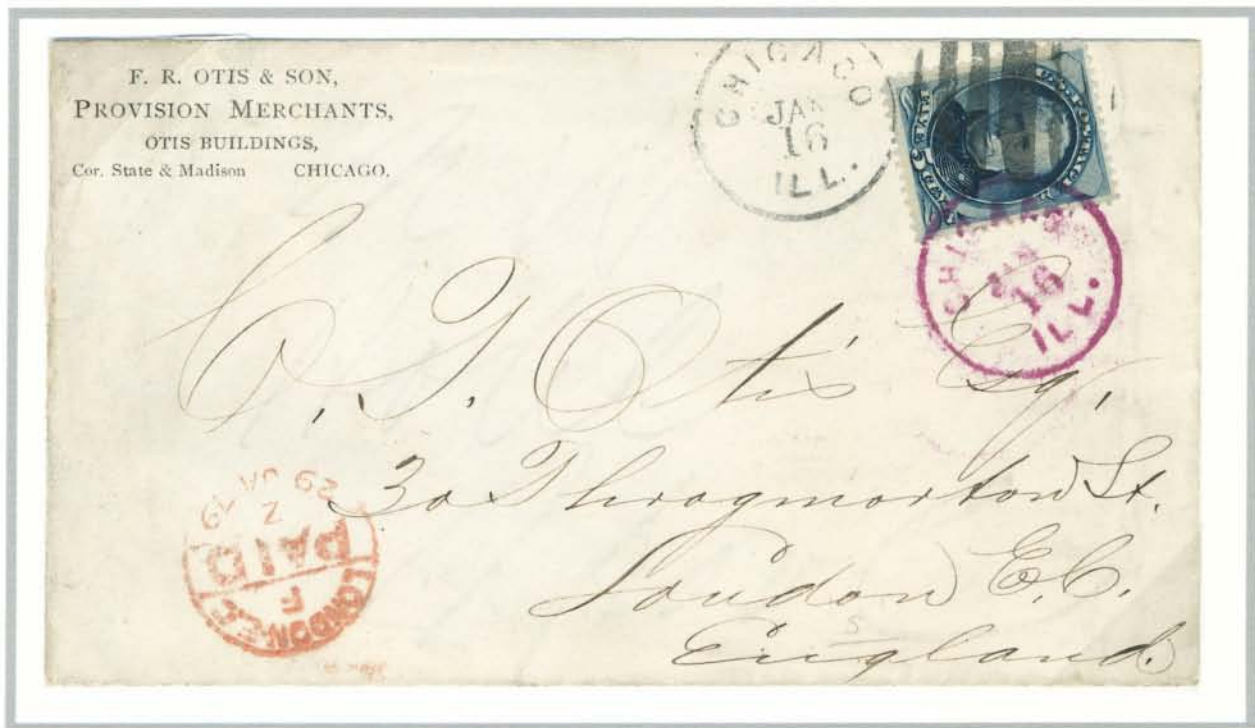 F. R. OTIS & SON,
PROVISION MERCHANTS,
OTIS BUILDINGS,
Cor. State & Madison CHICAGO.
CHICAGO
JAN
16
ILL.
U.S. POSTAGE
FIVE 5 CENTS
CHICAGO
JAN
16
ILL.
C. T. Otis Esq,
30 Throgmorton St.
London E.C.
England.
LONDON E.C
F
PAID
Z
29 JA 79